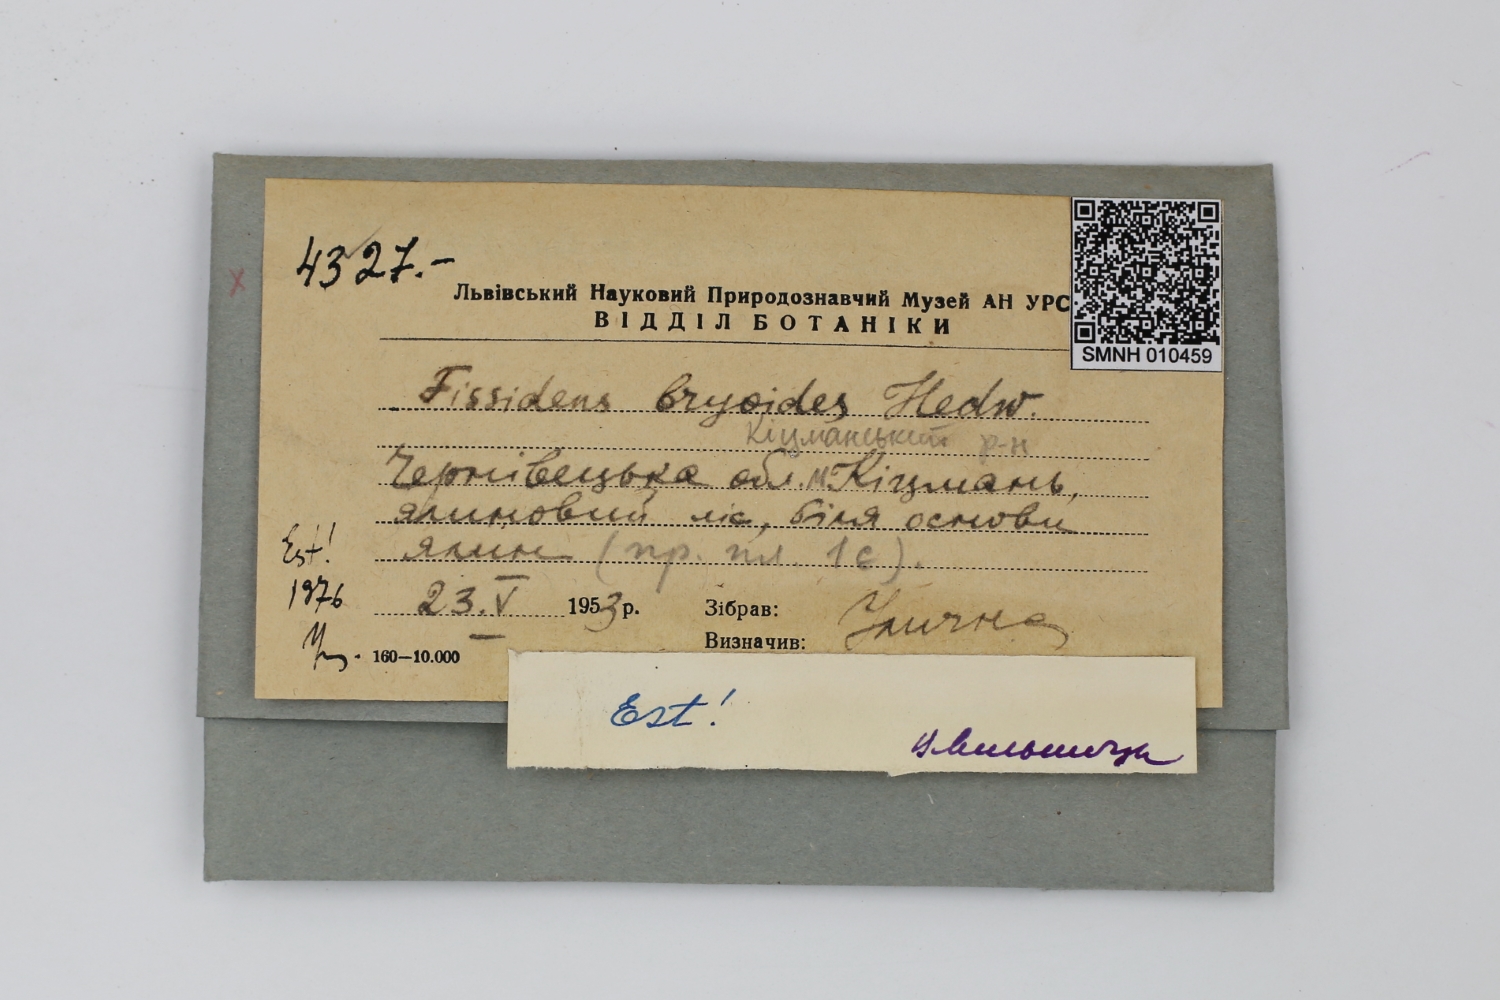 4327.-
Львівський Науковий Природознавчий Музей АН УРС
ВІДДІЛ БОТАНІКИ
SMNH 010459
Fissidens bryoides Hedw.
Кіцманський р-н
Чернівецька обл. м Кіцмань,
ялиновий ліс, біля основи
ялин (пр. пл. 1с).
Est!
1976
23.V 1953 р.
Зібрав: Улична
Визначив:
160—10.000
Est!